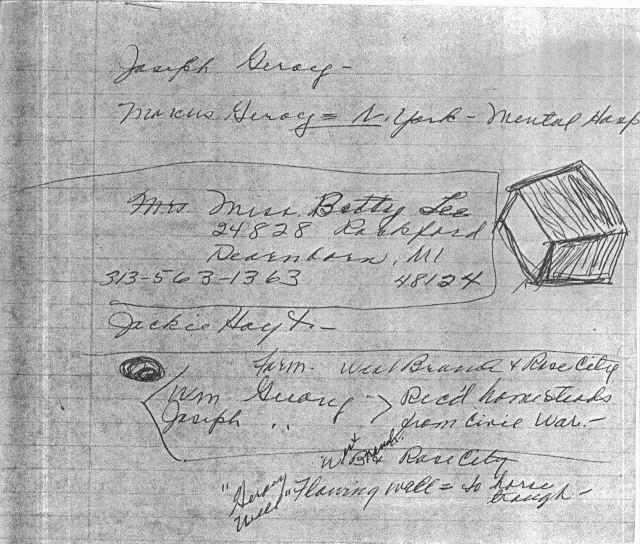 Joseph Geroy -
Marcus Geroy = N. York - Mental Hosp
Mrs. Miss Betty Lee
24828 Rockford
Dearnborn, MI
313-563-1363 48124
Jackie Hoyt -
Farm - West Branch & Rose City
Wm Geroy - > Rec'd homesteads
Joseph " from Civil War. -
West Branch & Rose City
"Geroy Well" Flowing well = to horse trough -